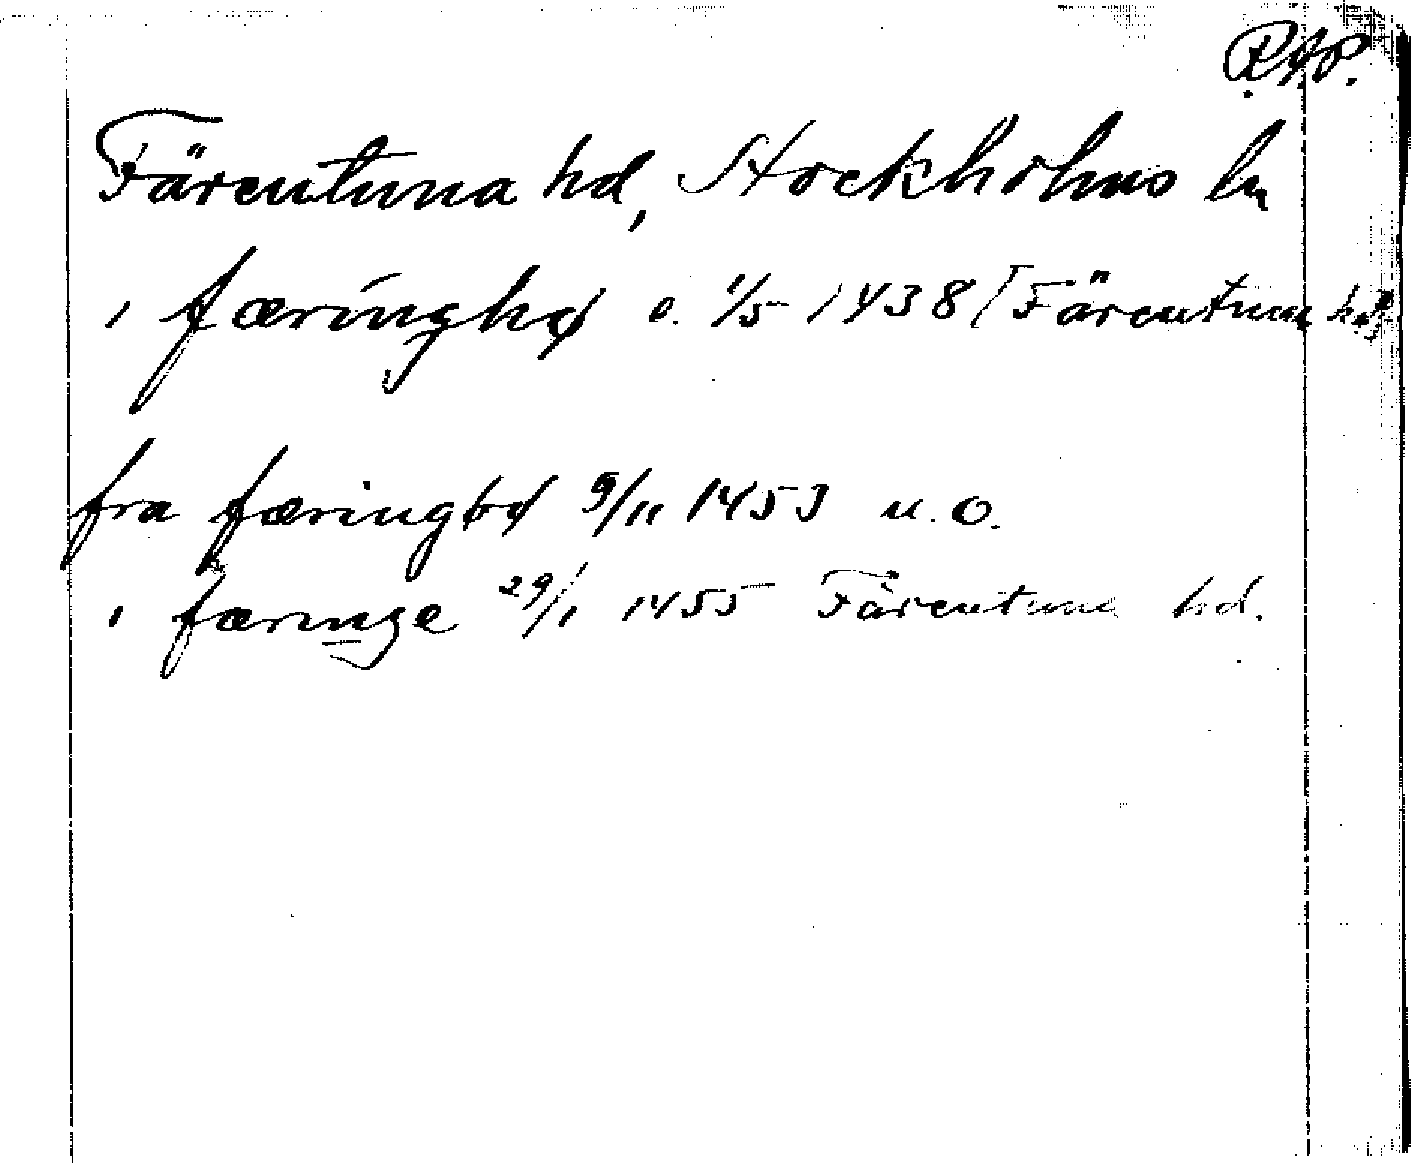 RAP.
Färentuna hd, Stockholms ln
i færinghø o. 1/5 1438 [Färentuna hd]
fra færingøø 9/11 1453 u.o.
i færinge 29/1 1455 Färentuna hd.